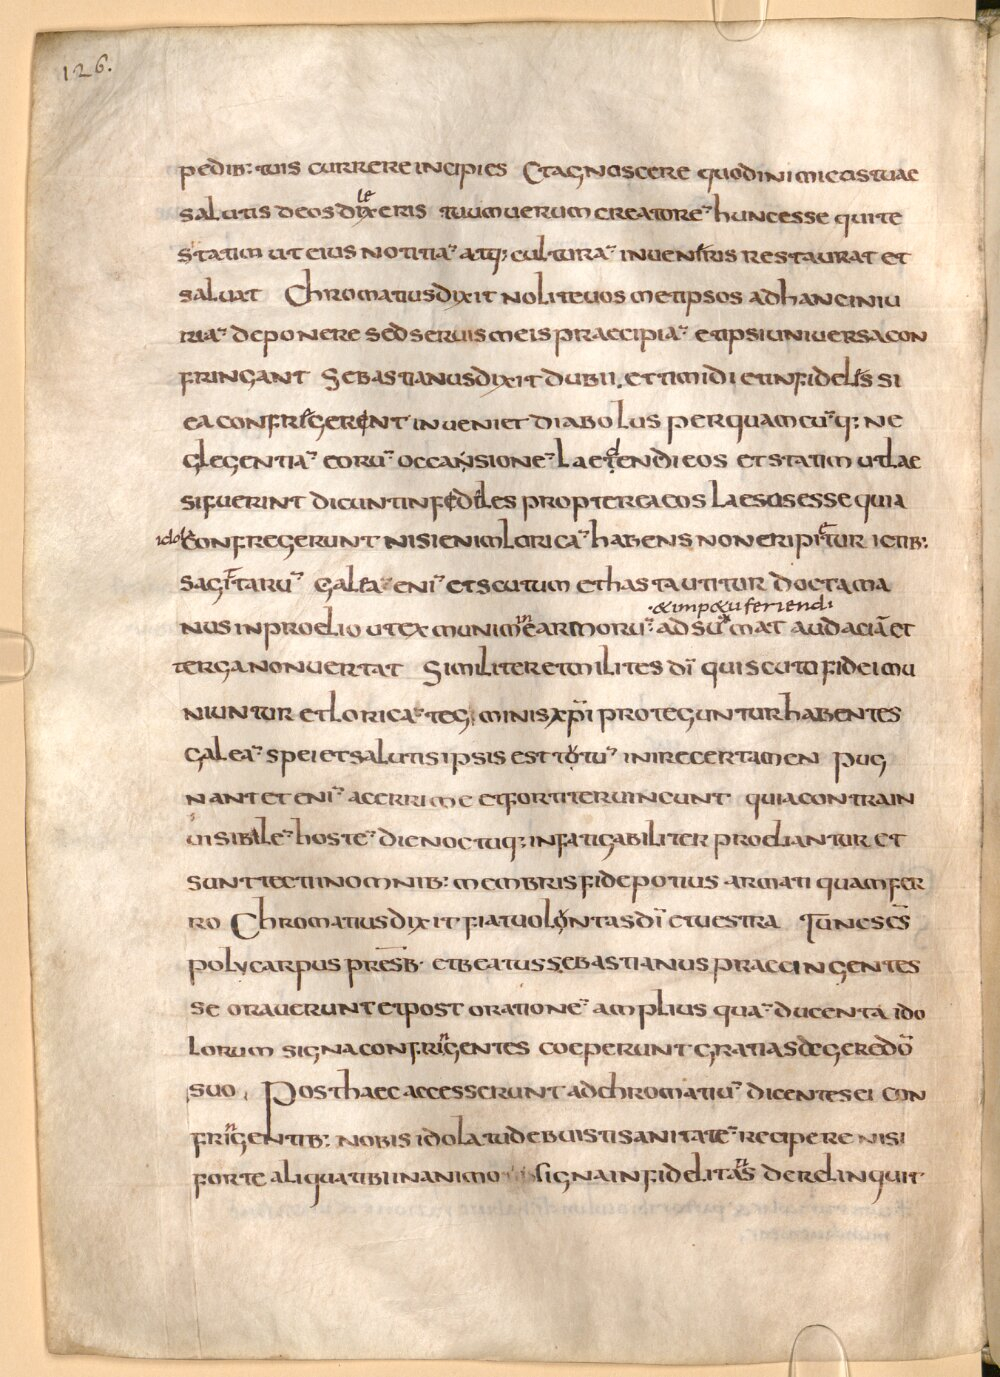 126.
pedib: tuis currere incipies Et agnoscere quod inimicos tuae
salutis deos dixeris tuum uerum creatore᷃ hunc esse qui te
statim ut eius notitia᷃ atq; cultura᷃ inueneris restaurat et
saluat Chromatius dixit nolite uos metipsos ad hanc iniu
ria᷃ deponere sed seruis meis praecipia᷃ et ipsi uniuersa con
fringant Sebastianus dixit dubii, et timidi et infidelis si
ea confrigerent inueniet diabolus per quamcu᷃q; ne
glegentia᷃ eoru᷃ occansione᷃ laetendi eos et statim ut lae
si fuerint dicunt infideles propterea eos laesos esse quia
idola
confregerunt nisi enim lorica᷃ habens non eripitur ictib:
sagittaru᷃ galea᷃ eni᷃ et scutum et hasta utitur docta ma
& impetu feriendi
nus in proelio ut ex munimine armoru᷃ adsumat audaciā et
terga non uertat Similiter et milites dī qui scuto fidei mu
niuntur et lorica᷃ tegminis xp̄i proteguntur habentes
galea᷃ spei et salutis ipsis est totu᷃ in ire certamen pug
nant et eni᷃ acerrime et fortiter uincunt quia contra in
uisibile᷃ hoste᷃ die noctuq; infatigabiliter proeliantur et
sunt tecti in omnib: membris fide potius armati quam fer
ro Chromatius dixit fiat uolontas dī et uestra Tun̄c sc̄s
polycarpus presb̄ et beatus sebastianus praecingentes
se orauerunt et post oratione᷃ amplius qua᷃ ducenta ido
lorum signa confringentes coeperunt gratias agere dō
suo, Post haec accesserunt ad chromatiu᷃ dicentes ei con
fringentib: nobis idola tu debuisti sanitate᷃ recipere nisi
forte aliqua tibi in animo signa infidelitas derelinquit